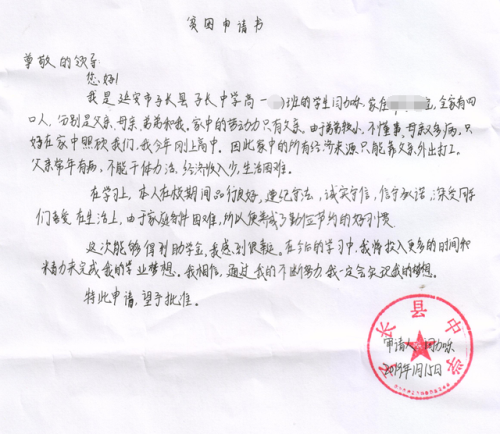 贫困申请书
尊敬的领导
您好!
我是延安市子长县子长中学高一 班的学生闫 家住 全家有四
口人，分别是父亲、母亲、弟弟和我。家中的劳动力只有父亲。由于弟弟较小，不懂事，母亲又多病，只
好在家中照顾我们，我今年刚上高中。因此家中的所有经济来源只能靠父亲外出打工。
父亲常年有病，不能干体力活、经济收入少，生活困难。
在学习上，本人在校期间品行良好，遵纪守法，诚实守信，信守承诺，深受同学
们喜爱，在生活上，由于家庭条件困难，所以便养成了勤俭节约的好习惯
这次能够得到助学金，我感到很 在今后的学习中，我将投入更多的时间和
精力来完成我的学业梦想。我相信，通过我的不断努力我一定会实现我的梦想。
特此申请，望予批准。
申请人：闫
2019年1月15日
子长县中学